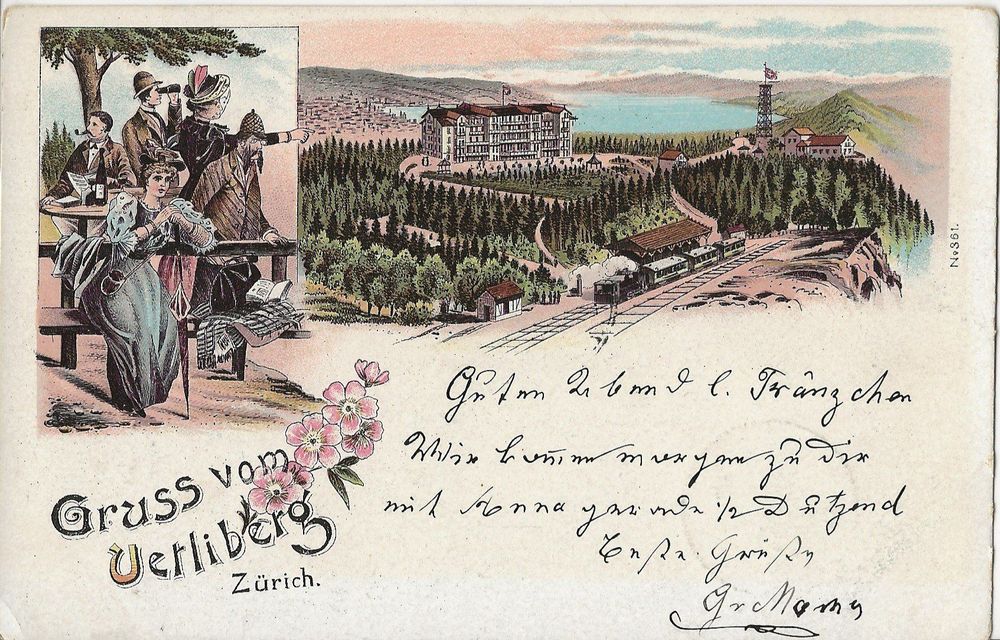 Gruss vom
Uetliberg
Zürich.
No 361.
Guten Abend l. Fränzchen
Wir kommen morgen zu dir
mit Anna gerade 1/2 Dutzend
Beste Grüße
Gr Mama